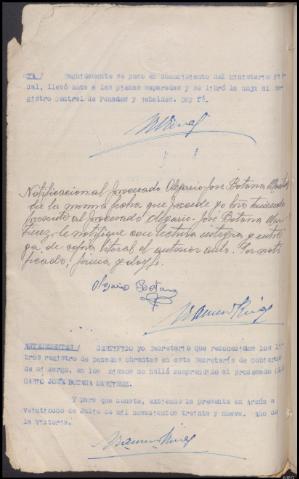 OTRA/ Seguidamente se puso en conocimiento del ministerio fis-
cal, llevó nota a las piezas separadas y se libró la hoja al re-
gistro Central de Penados y rebeldes. Doy fé.
Notificacion al Procesado Olegario José Botana
En la misma fecha que precede yo
presente al procesado Olegario José Botana Mar
tinez, le notifiqué con lectura integra y entre
ga de copia literal el anterior auto. Con not
ificado, firma y doy fe.
Olegario Botana
ANTECEDENTES/ CERTIFICO yo Secretario que reconocidos los li-
bros registro de penados obrantes en esta Secretaría de Gobierno
de mi cargo, en los mismos no halló comprendido al procesado OLE
GARIO JOSÉ BOTANA MARTINEZ.
Y para que conste, extiendo la presente en Arzúa a
veintidos de Julio de mil novecientos treinta y nueve. Año de
la Victoria.